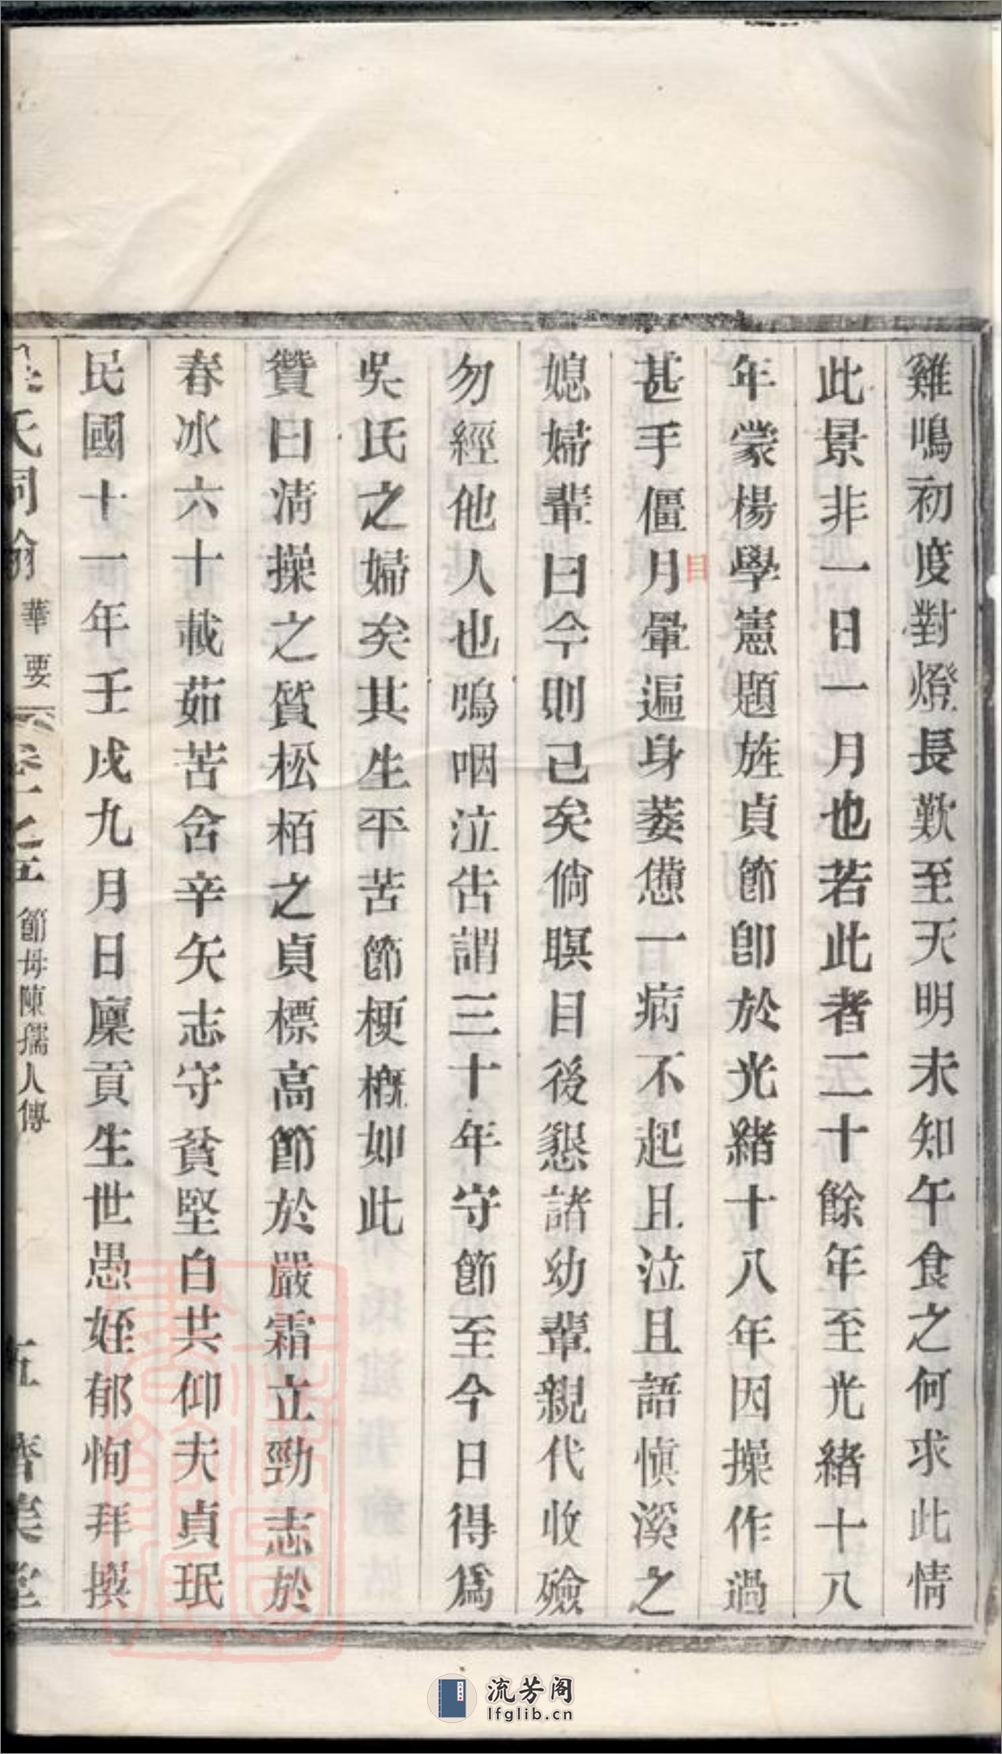 雞鳴初度對燈長歎至天明未知午食之何求此情
此景非一日一月也若此者二十餘年至光緒十八
年蒙楊學憲題旌貞節卽於光緒十八年因操作過
甚手僵月暈遍身萎憊一病不起且泣且語愼溪之
目
媳婦輩曰今則已矣倘瞑目後懇諸幼輩親代收殮
勿經他人也嗚咽泣告謂三十年守節至今日得爲
吳氏之婦矣其生平苦節梗槪如此
贊曰淸操之質松栢之貞標高節於嚴霜立勁志於
春冰六十載茹苦含辛矢志守貧堅白共仰夫貞珉
民國十一年壬戌九月日廩貢生世愚姪郁恂拜撰
吳氏 華要 卷一之五 節母陳孺人傳 五
流芳阁
lfglib.cn